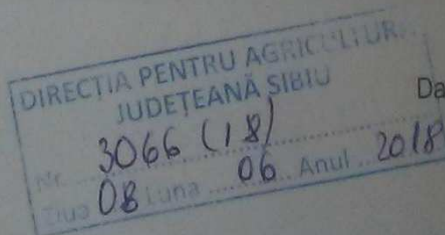 DIRECȚIA PENTRU AGRICULTUR
JUDEȚEANĂ SIBIU
Da
Nr. 3066 (18)
Ziua 08 Luna 06 Anul 2018